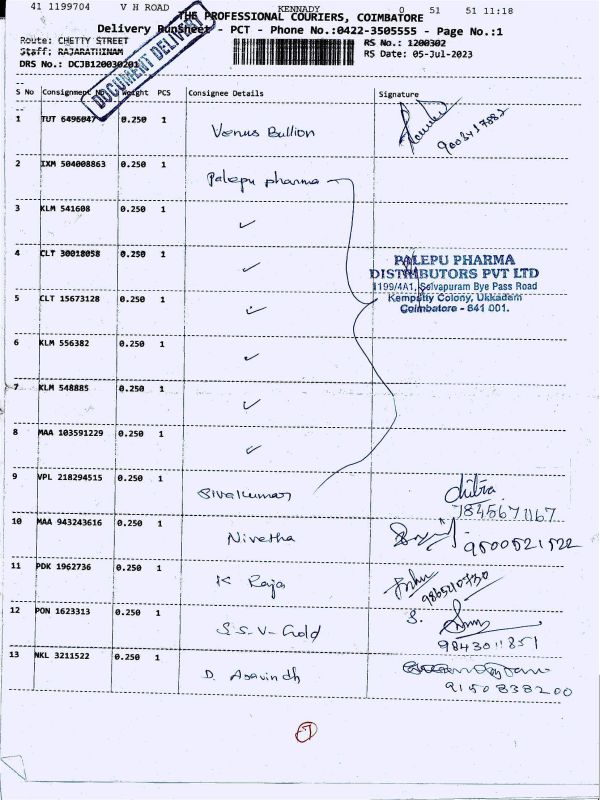 41 1199704 V H ROAD KENNADY 0 51 51 11:18
THE PROFESSIONAL COURIERS, COIMBATORE
Delivery Runsheet - PCT - Phone No.:0422-3505555 - Page No.:1
Route: CHETTY STREET RS No.: 1200302
Staff: RAJARATHINAM RS Date: 05-Jul-2023
DRS No.: DCJB120030201
DOCUMENT DELIVERY
S No Consignment No Weight PCS Consignee Details Signature
1 TUT 6496047 0.250 1 Venus Bullion 9003417882
2 IXM 504008863 0.250 1 Palepu pharma
3 KLM 541608 0.250 1 ✓
4 CLT 30018058 0.250 1 ✓
PALEPU PHARMA
DISTRIBUTORS PVT LTD
1199/4A1, Selvapuram Bye Pass Road
5 CLT 15673128 0.250 1 ✓ Kempatty Colony, Ukkadam
Coimbatore - 641 001.
6 KLM 556382 0.250 1 ✓
7 KLM 548885 0.250 1 ✓
8 MAA 103591229 0.250 1 ✓
9 VPL 218294515 0.250 1 Sivakumar Chitra
7845671167
10 MAA 943243616 0.250 1 Nivetha
9500521522
11 PDK 1962736 0.250 1 K Raja
9865210730
12 PON 1623313 0.250 1 S.S.V-Gold S.
9843011851
13 NKL 3211522 0.250 1 D. Aravindh
9150838200
7